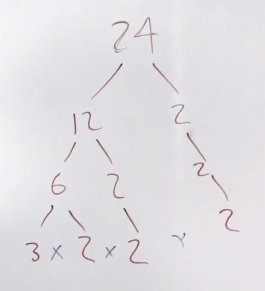 24
12 2
6 2 2
3 x 2 x 2 2